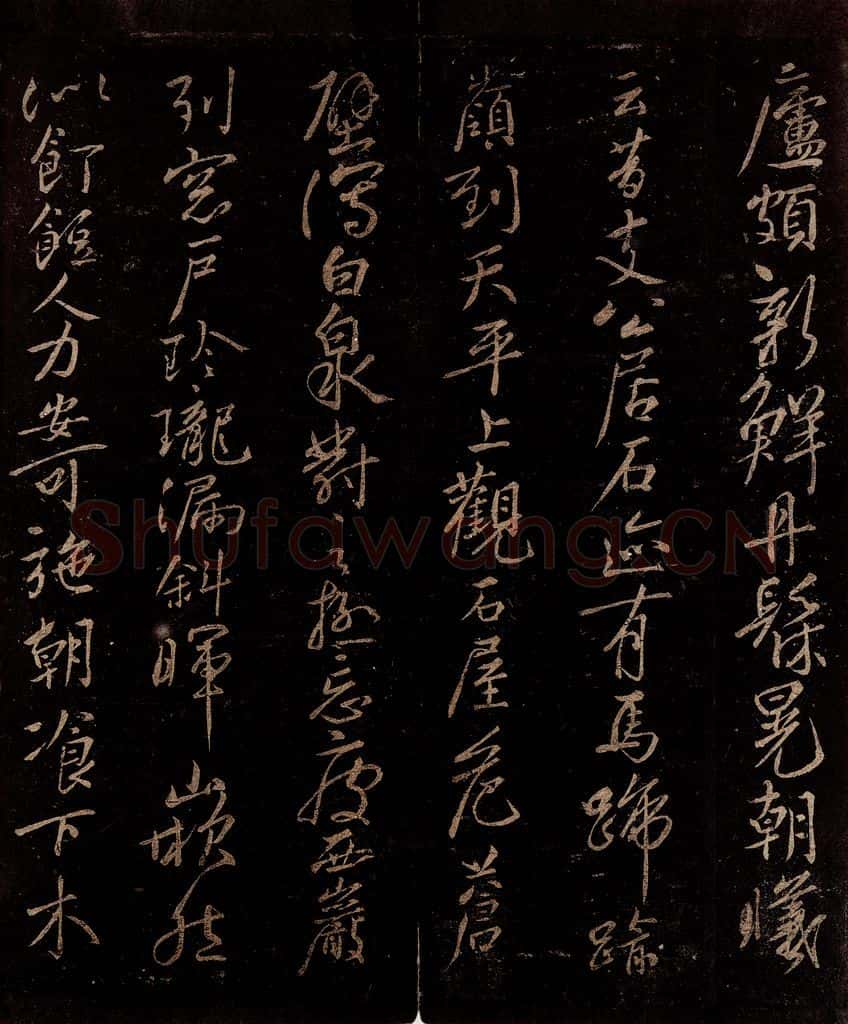 廬頗新鮮丹髹晃朝曦
云昔支公居石迹有馬蹄踰
嶺到天平上觀石屋危蒼
壁瀉白泉對之極忘疲西巖
列窓戶玲瓏漏斜暉山蔌然
似飣餖人力安可施朝飡下木
Shufawang.CN